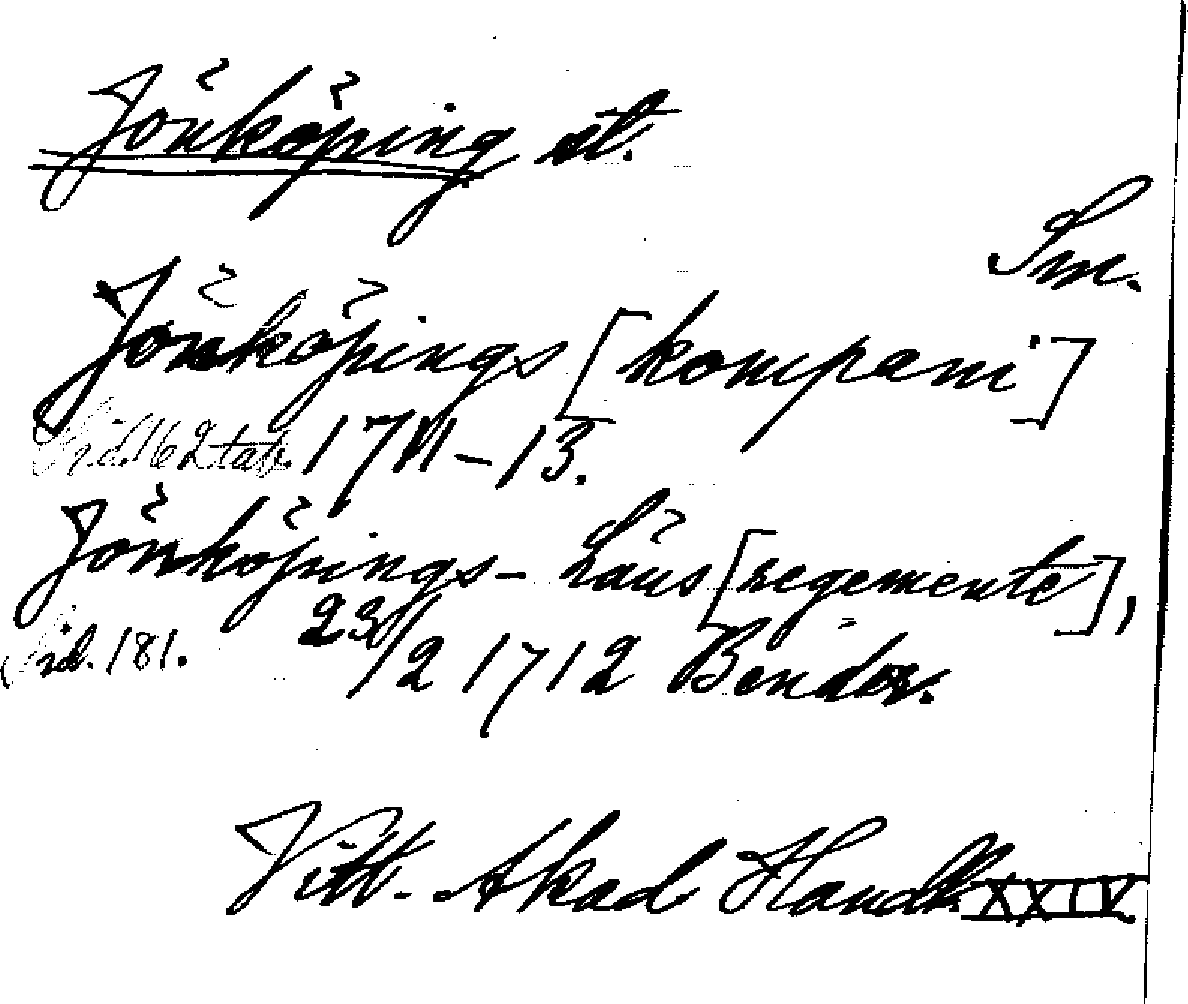 Jönköping st.
Sm.
Jönköpings [kompani]
Sid. 162 tab. 1711-13.
Jönköpings-Läns [regemente],
Sid. 181. 23/2 1712 Bender.
Vitt. Akad Handl. XXIV